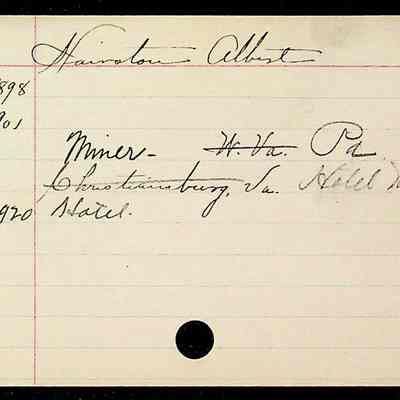 Hairston Albert
1898
901
Miner - W. Va. Pa
Christiansburg, Va. Hotel
1920 Hotel.